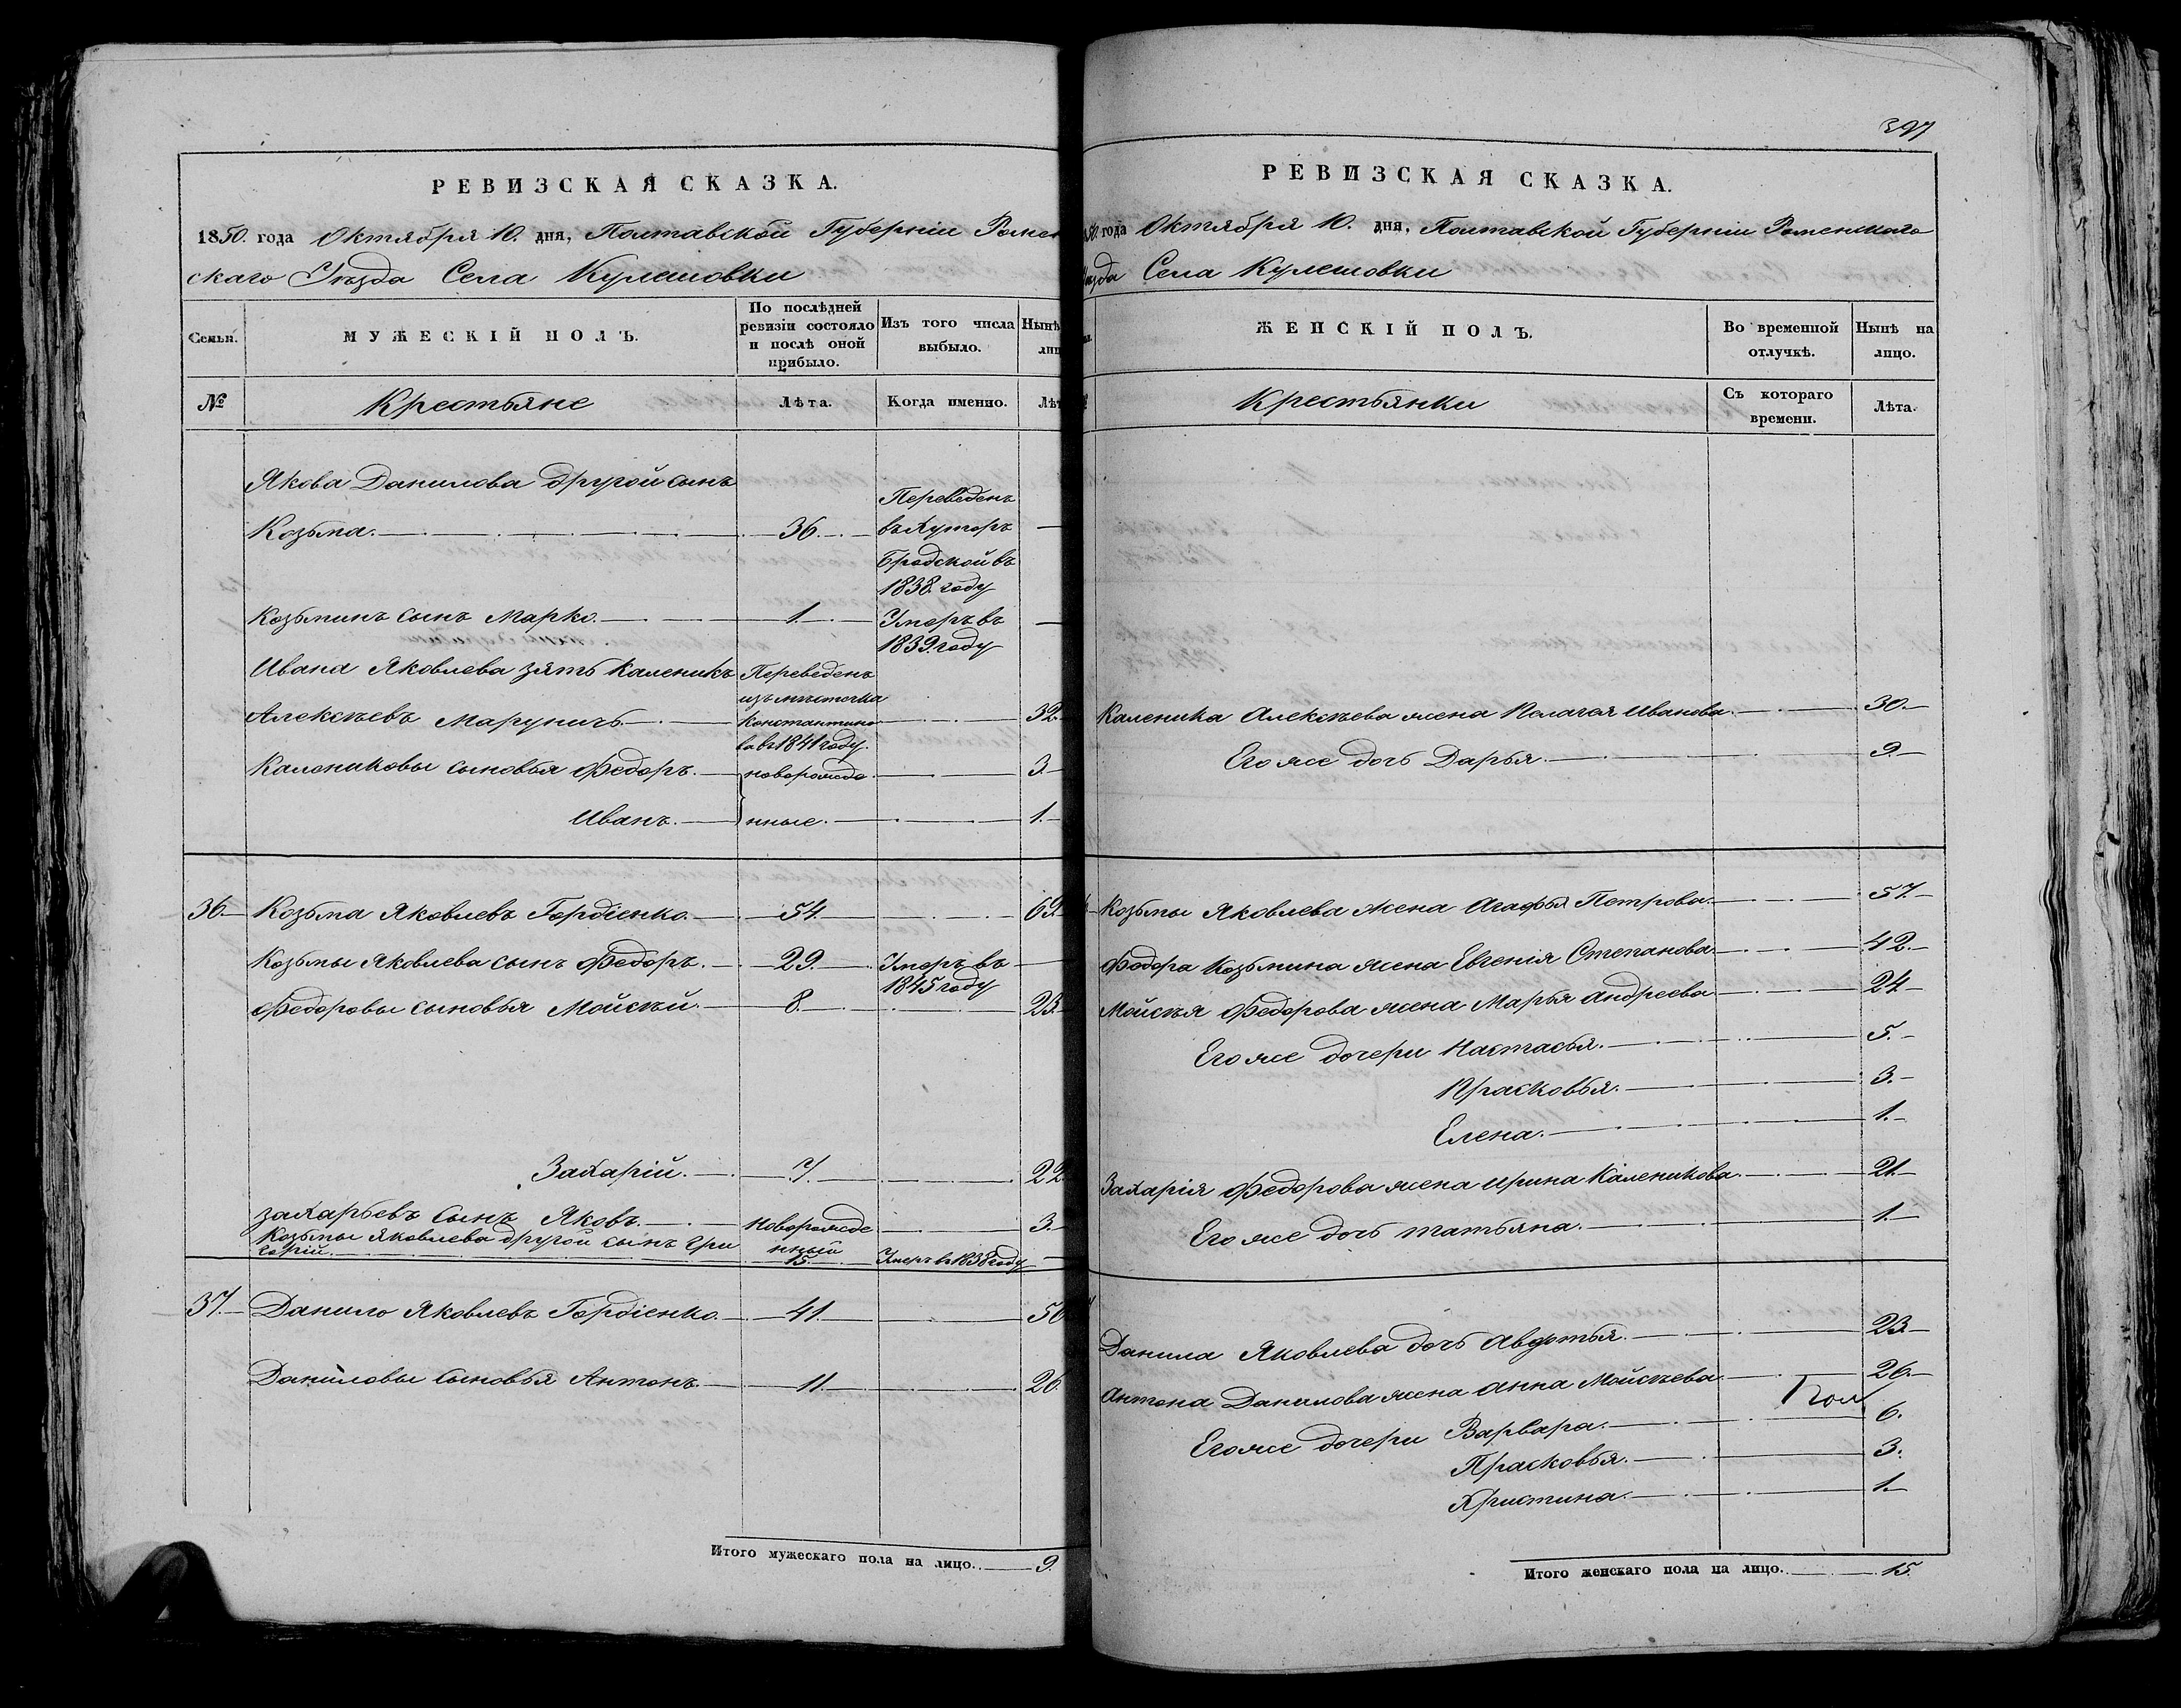 РЕВИЗСКАЯ СКАЗКА.
1850. года Октября 10. дня, Полтавской Губерніи Ромен
скаго Уѣзда Села Кулешовки
Семьи.
МУЖЕСКІЙ ПОЛЪ.
По послѣдней
ревизіи состояло
и послѣ оной
прибыло.
Изъ того числа
выбыло.
Нынѣ
лиц
№
Крестьяне
Лѣта.
Когда именно.
Лѣт
Якова Данилова другой сынъ
Козьма. 36. Переведенъ
въ Хуторъ
Бродской въ
1838. году
Козьминъ сынъ Марко. 1. Умеръ въ
1839. году
Ивана Яковлева зять Каленикъ Переведенъ
изъ мѣстечка
Алексѣевъ Маруничъ Константино 32.
ва въ 1841 году.
Калениковы сыновья Федоръ. новорожде 3.
Иванъ. нные. 1.
36. Козьма Яковлевъ Гордіенко. 54. 69.
Козьмы Яковлева сынъ Федоръ. 29. Умеръ въ
1845 году
Федоровы сыновья Мойсѣй. 8. 23.
Захарій. 7. 22
Захарьевъ сынъ Яковъ. новорожде 3.
нный
Козьмы Яковлева другой сынъ Гри
горій. 15. Умеръ въ 1838 году
37. Данило Яковлевъ Гордіенко. 41. 56
Даниловы сыновья Антонъ. 11. 26.
Итого мужескаго пола на лицо. 9.
397
РЕВИЗСКАЯ СКАЗКА.
50. года Октября 10. дня, Полтавской Губерніи Роменскаго
ѣзда Села Кулешовки
ЖЕНСКІЙ ПОЛЪ.
Во временной
отлучкѣ.
Нынѣ на
лицо.
Крестьянки
Съ котораго
времени.
Лѣта.
Каленика Алексѣева жена Пелагея Иванова. 30.
Его же дочь Дарья. 9.
Козьмы Яковлева жена Агафья Петрова. 57.
Федора Козьмина жена Евгенія Степанова. 42.
Мойсѣя Федорова жена Марья Андреева. 24
Его же дочери Настасья. 5.
Прасковья. 3.
Елена. 1.
Захарія Федорова жена Ирина Каленикова. 21.
Его же дочь Татьяна. 1.
Данила Яковлева дочь Авдотья. 23.
Антона Данилова жена Анна Мойсѣева. 26.
Его же дочери Варвара. 6.
Прасковья. 3.
Христина. 1.
Итого женскаго пола на лицо. 15.